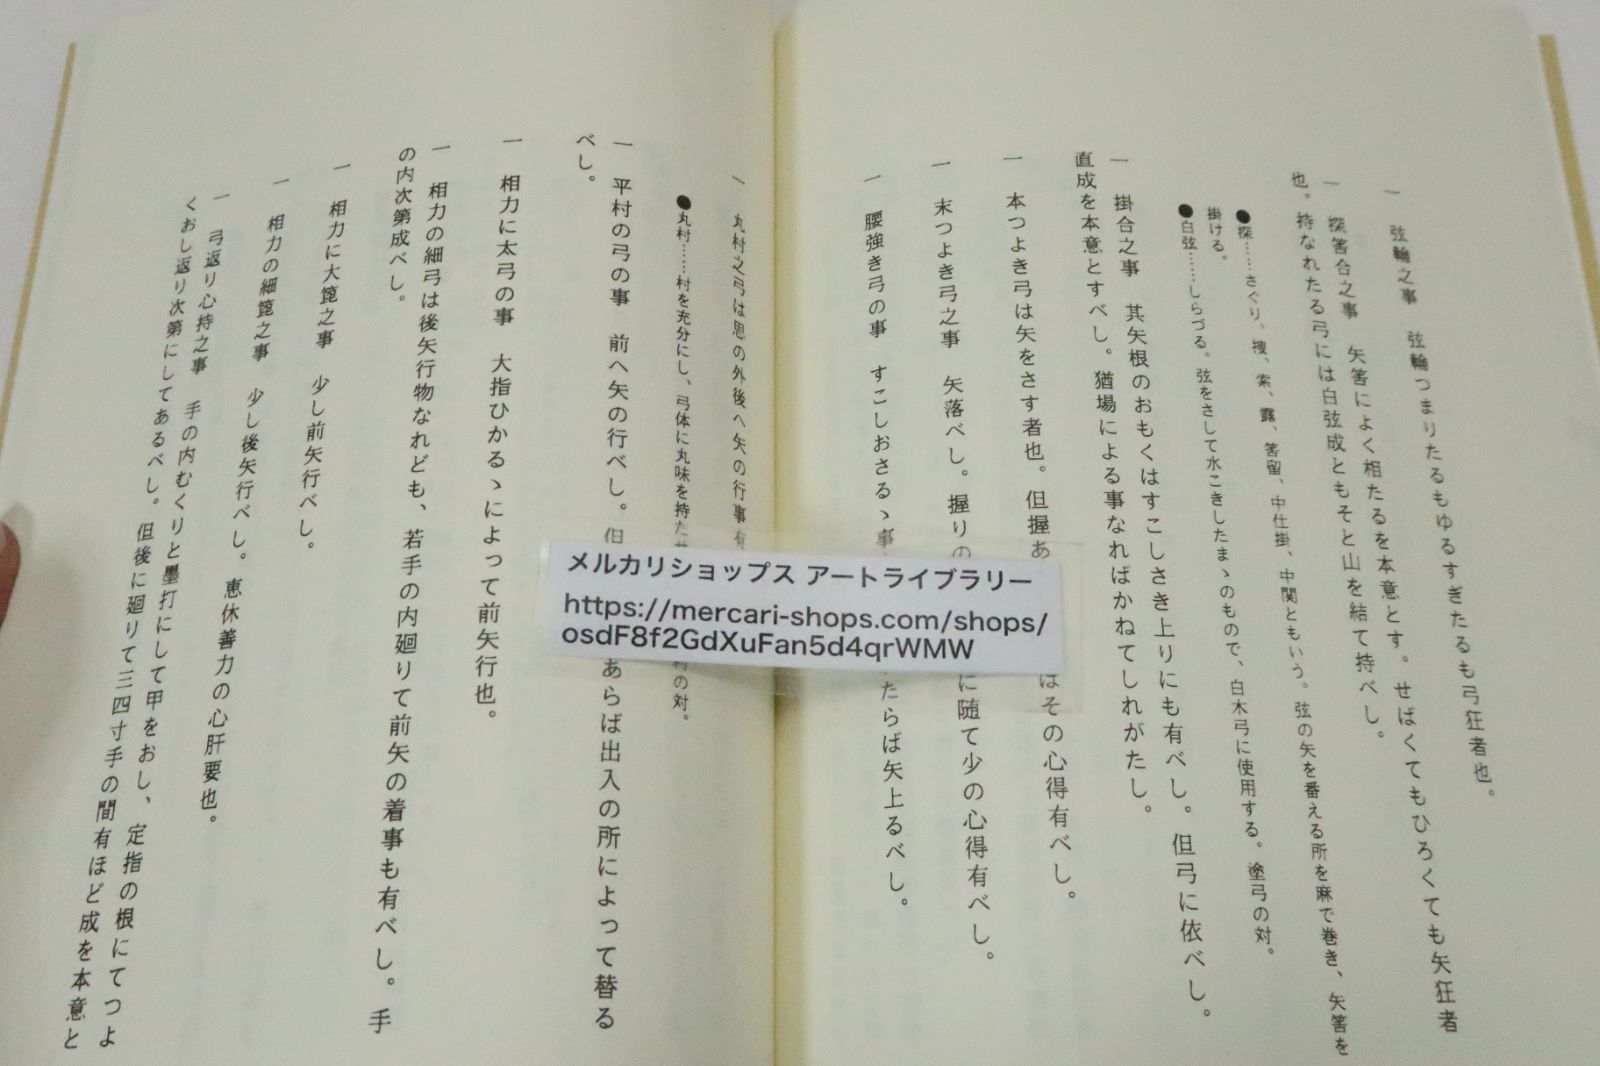 一　弦輪之事　弦輪つまりたるもゆるすぎたるも弓狂者也。
一　探筈合之事　矢筈によく相たるを本意とす。せばくてもひろくても矢狂者
也。持なれたる弓には白弦成ともそと山を結て持べし。
●探……さぐり、捜、索、露、筈留、中仕掛、中関ともいう。弦の矢を番える所を麻で巻き、矢筈を
掛ける。
●白弦……しらづる。弦をさして水こきしたまゝのもので、白木弓に使用する。塗弓の対。
一　掛合之事　其矢根のおもくはすこしさき上りにも有べし。但弓に依べし。
直成を本意とすべし。猶場による事なればかねてしれがたし。
一　本つよき弓は矢をさす者也。但握あ
はその心得有べし。
一　末つよき弓之事　矢落べし。握りの
に随て少の心得有べし。
一　腰強き弓の事　すこしおさるゝ事
たらば矢上るべし。
一　丸村之弓は思の外後へ矢の行事有
●丸村……村を充分にし、弓体に丸味を持た
村の対。
一　平村の弓の事　前へ矢の行べし。但
あらば出入の所によって替る
べし。
一　相力に太弓の事　大指ひかるゝによって前矢行也。
一　相力の細弓は後矢行物なれども、若手の内廻りて前矢の着事も有べし。手
の内次第成べし。
一　相力に大箆之事　少し前矢行べし。
一　相力の細箆之事　少し後矢行べし。恵休善力の心肝要也。
一　弓返り心持之事　手の内むくりと墨打にして甲をおし、定指の根にてつよ
くおし返り次第にしてあるべし。但後に廻りて三四寸手の間有ほど成を本意と
メルカリショップス アートライブラリー
https://mercari-shops.com/shops/
osdF8f2GdXuFan5d4qrWMW